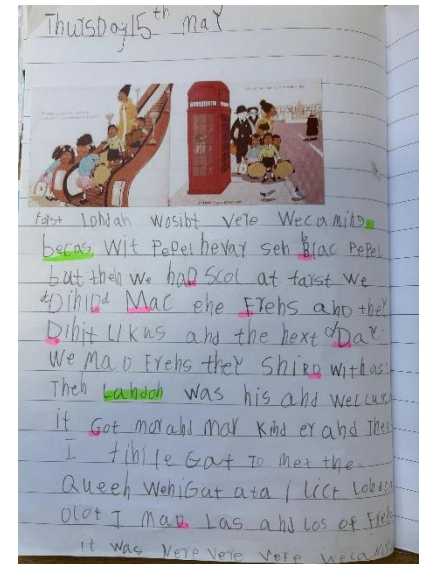 Thursday 15th May
farst Londan wosibt vere wecaming
becas wit PePel hevar seh Blac PePel
but then we had Scol at farst we
Dihind Mac ehe Frehs and they
Dihit likus and the next Day
We Mad Frehs they Shird with as
Then Landon was his and Wellcum
it Got mor and mor Kind er and Then
I Got To met the
Queen Lict London
olot I Mad Las and Los of
it was Vere Vere Vere